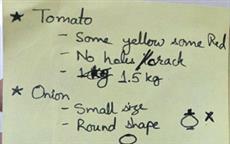 ★ Tomato
- Some yellow some Red
- No holes/crack
- 1.5 kg
★ Onion
- Small size
- Round shape